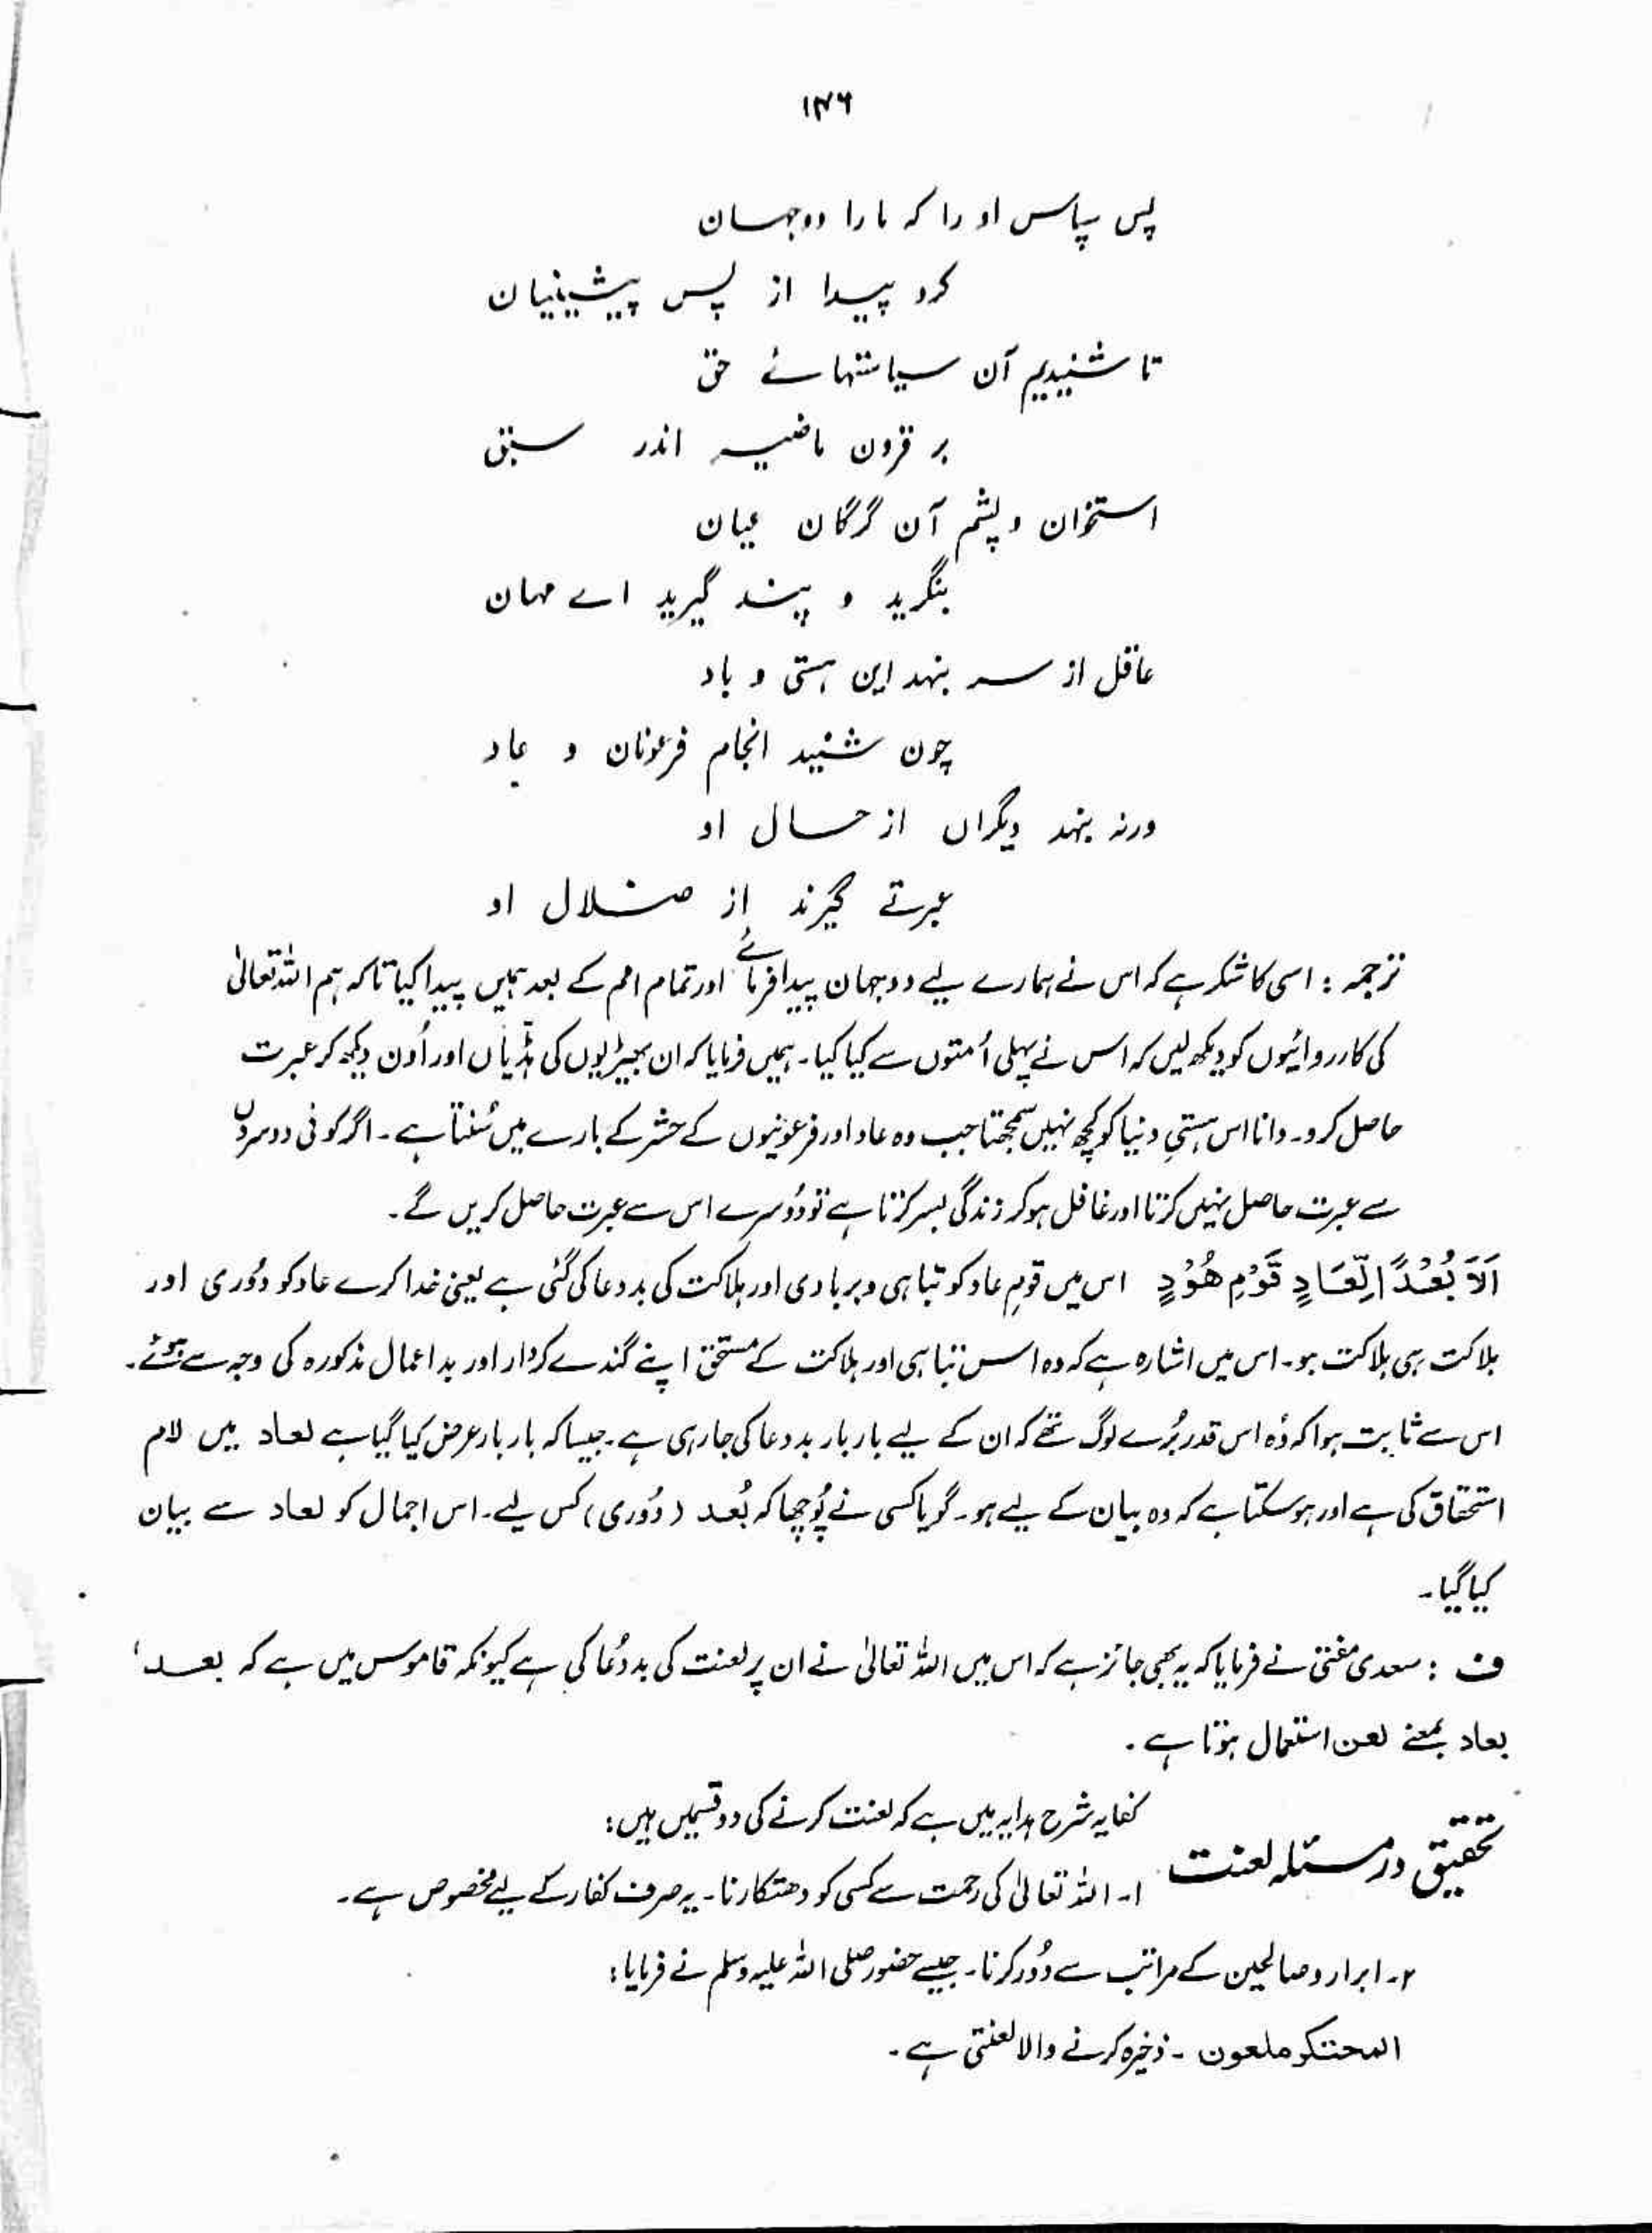 ۱۴۶
پس سپاس او را کہ ما را دوجہان
کرد پیدا از پس پیشینیان
تا شنیدیم آن سیاستہائے حق
بر قرون ماضیہ اندر سبق
استخوان و پشم آن گرگان عیان
بنگرید و پند گیرید اے مہان
عاقل از سر بنہد این ہستی و باد
چون شنید انجام فرعونان و عاد
ورنہ بنہد دیگراں از حال او
عبرتے گیرند از ضلال او
ترجمہ : اسی کا شکر ہے کہ اس نے ہمارے لیے دوجہان پیدا فرمائے اور تمام امم کے بعد ہمیں پیدا کیا تاکہ ہم اللہ تعالیٰ
کی کارروائیوں کو دیکھ لیں کہ اس نے پہلی اُمتوں سے کیا کیا۔ ہمیں فرمایا کہ ان بھیڑیوں کی ہڈیاں اور اُون دیکھ کر عبرت
حاصل کرو۔ دانا اس ہستیِ دنیا کو کچھ نہیں سمجھتا جب وہ عاد اور فرعونیوں کے حشر کے بارے میں سُنتا ہے۔ اگر کوئی دوسروں
سے عبرت حاصل نہیں کرتا اور غافل ہو کر زندگی بسر کرتا ہے تو دُوسرے اس سے عبرت حاصل کریں گے۔
اَلَا بُعْدًا لِّعَادٍ قَوْمِ هُوْدٍ اس میں قومِ عاد کو تباہی و بربادی اور ہلاکت کی بددعا کی گئی ہے یعنی خدا کرے عاد کو دُوری اور
ہلاکت ہی ہلاکت ہو۔ اس میں اشارہ ہے کہ وہ اس تباہی اور ہلاکت کے مستحق اپنے گندے کردار اور بد اعمال مذکورہ کی وجہ سے ہوئے۔
اس سے ثابت ہوا کہ وُہ اس قدر بُرے لوگ تھے کہ ان کے لیے بار بار بددعا کی جا رہی ہے۔ جیسا کہ بار بار عرض کیا گیا ہے لعاد میں لام
استحقاق کی ہے اور ہو سکتا ہے کہ وہ بیان کے لیے ہو۔ گویا کسی نے پُوچھا کہ بُعد (دُوری) کس لیے۔ اس اجمال کو لعاد سے بیان
کیا گیا۔
ف : سعدی مفتی نے فرمایا کہ یہ بھی جائز ہے کہ اس میں اللہ تعالیٰ نے ان پر لعنت کی بددُعا کی ہے کیونکہ قاموس میں ہے کہ بعد'
بعاد بمعنے لعن استعمال ہوتا ہے۔
تحقیق در مسئلہ لعنت
کفایہ شرح ہدایہ میں ہے کہ لعنت کرنے کی دو قسمیں ہیں :
۱۔ اللہ تعالیٰ کی رحمت سے کسی کو دھتکارنا۔ یہ صرف کفار کے لیے مخصوص ہے۔
۲۔ ابرار و صالحین کے مراتب سے دُور کرنا۔ جیسے حضور صلی اللہ علیہ وسلم نے فرمایا :
المحتکر ملعون ۔ ذخیرہ کرنے والا لعنتی ہے۔